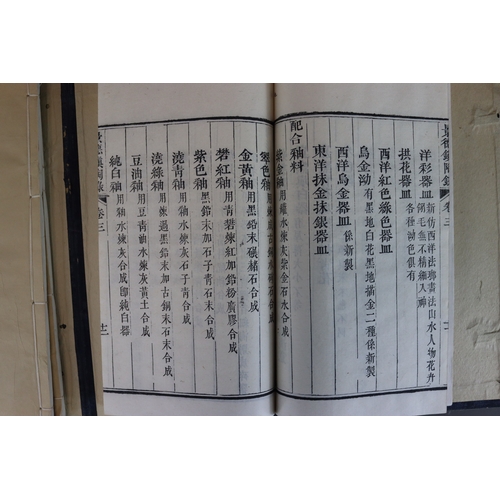 景德鎮陶錄 卷三
洋彩器皿 新仿西洋法瑯畫法山水人物花卉翎毛無不精細入神
拱花器皿 各種釉色俱有
西洋紅色綠色器皿
烏金泑 有黑地白花黑地描金二種係新製
西洋烏金器皿 係新製
東洋抹金抹銀器皿
配合釉料
紫金釉 用罐水煉灰紫金石水合成
翠色釉 用煉成古銅水硝石合成
金黃釉 用黑鉛末碾赭石合成
礬紅釉 用青礬煉紅加鉛粉廣膠合成
紫色釉 黑鉛末加石子青石末合成
澆青釉 用釉水煉灰石子青合成
澆綠釉 用煉過黑鉛末加古銅末石末合成
豆油釉 用豆青油水煉灰黃土合成
純白釉 用釉水煉灰合成即純白器
景德鎮陶錄 卷三 十二